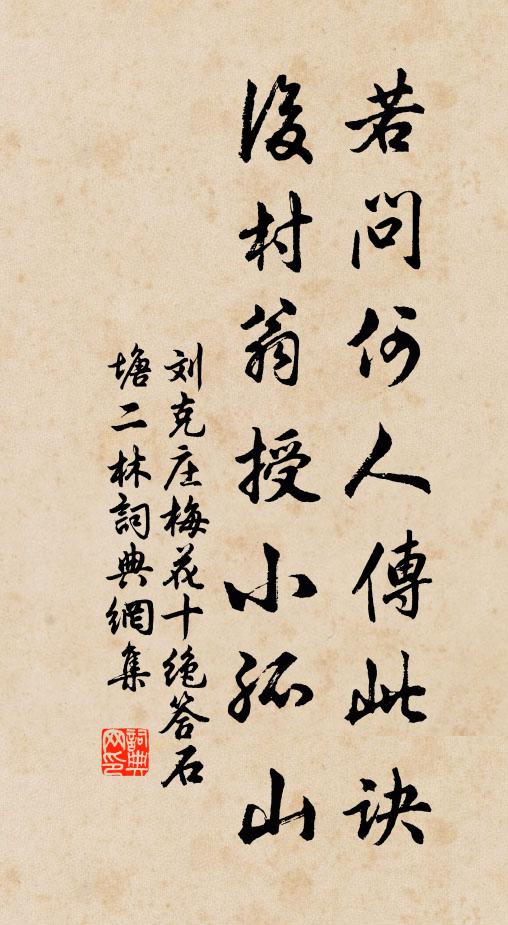 若問何人傳此訣
後村翁授小孤山
刘克庄梅花十绝答石
塘二林詞典網集
詞典网印